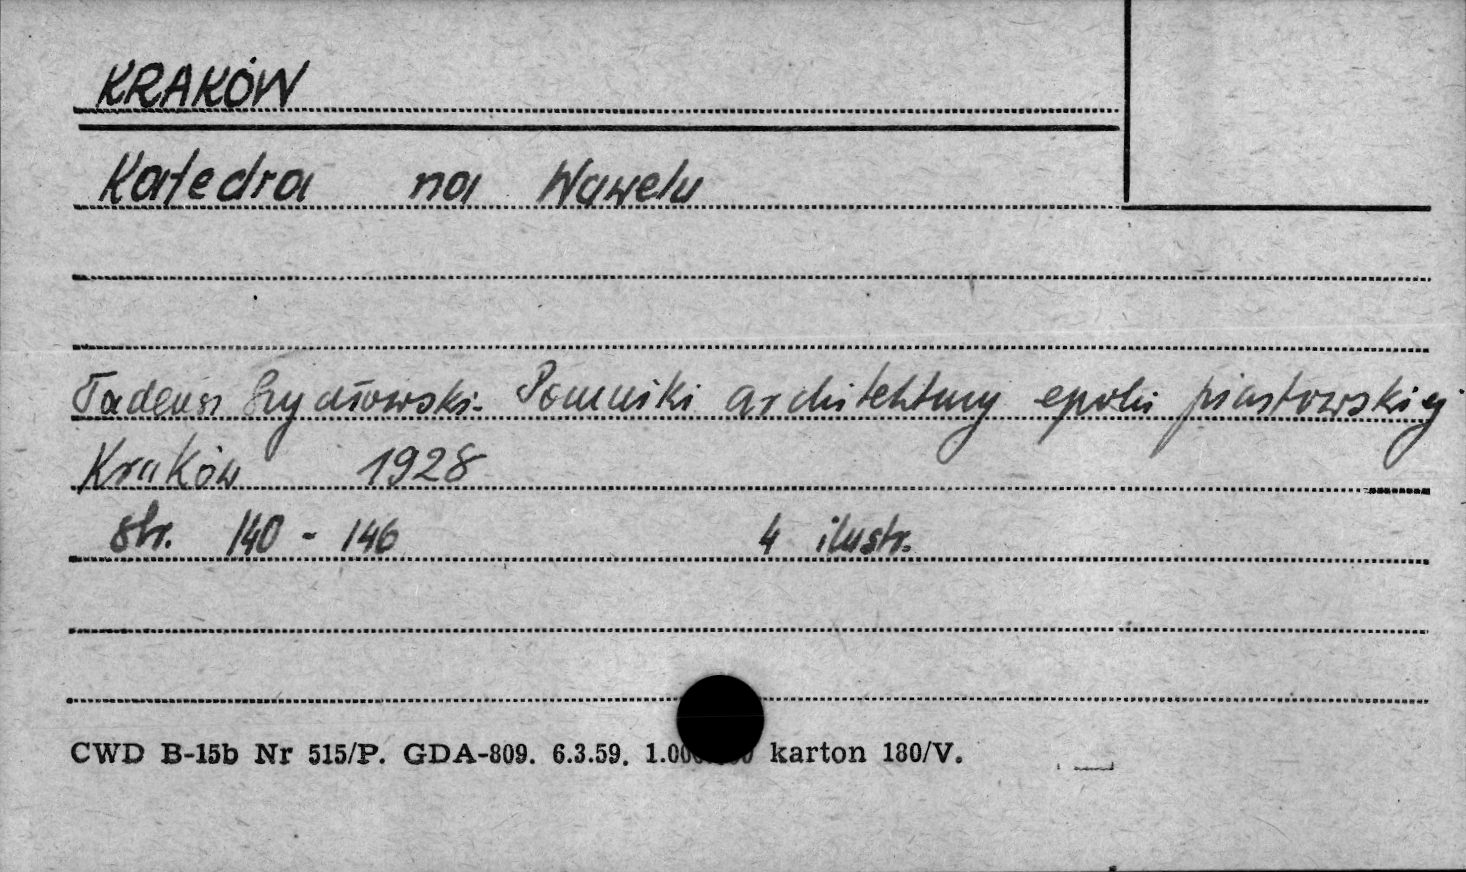 KRAKÓW
Katedra na Wawelu
Tadeusz Szydłowski. Pomniki architektury epoki piastowskiej
Kraków 1928
str. 140 - 146 4 ilustr.
CWD B-15b Nr 515/P. GDA-809. 6.3.59. karton 180/V.